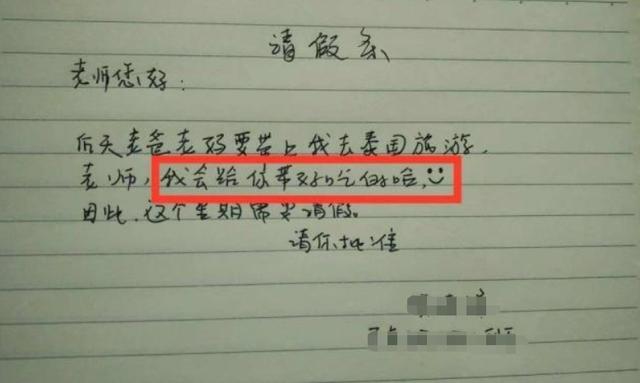 请假条
老师您好:
后天老爸老妈要带上我去泰国旅游,
老师,我会给你带好吃的哈,
因此,这个星期需要请假。
请你批准
班